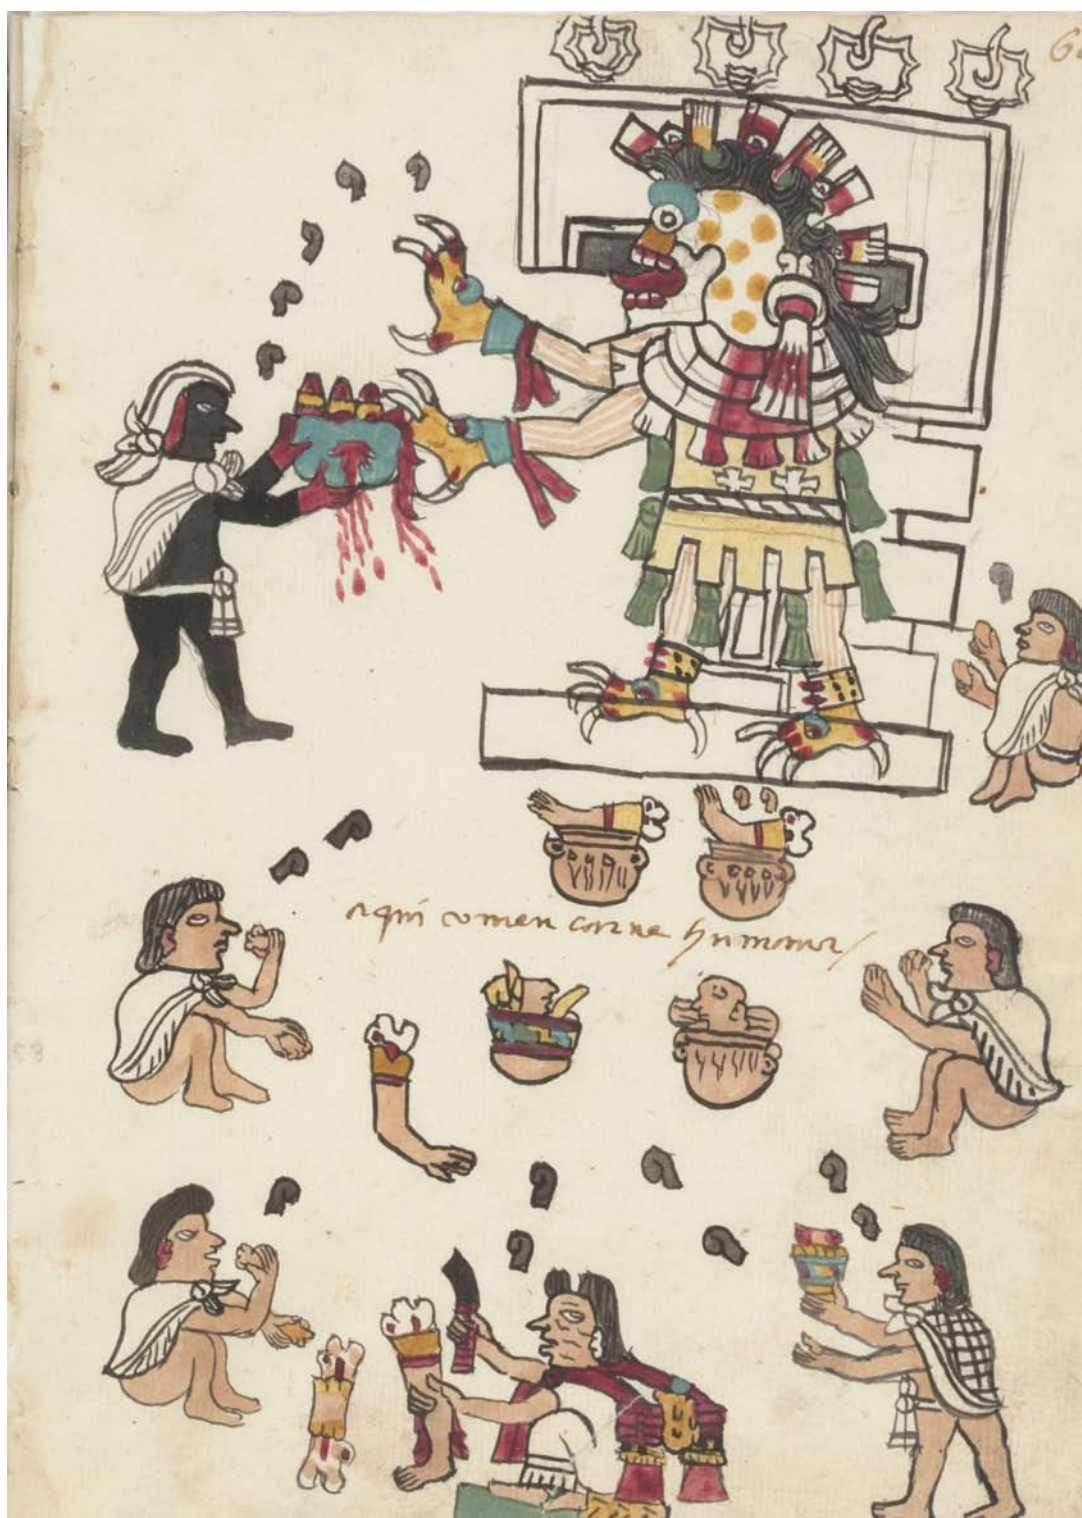 aqui comen carne humana